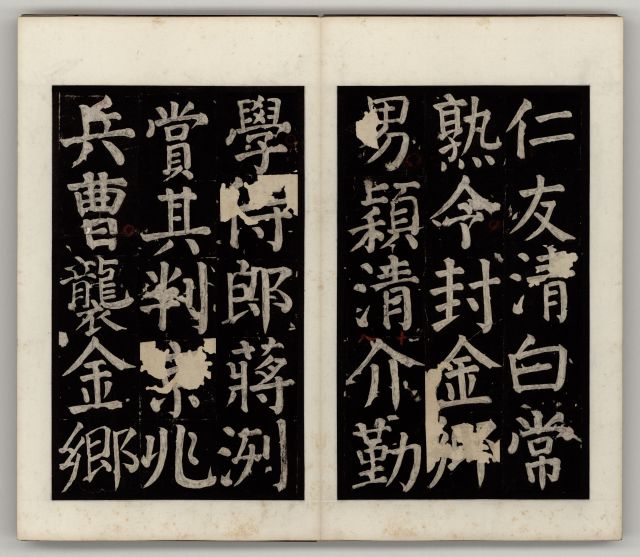 仁友清白常
熟令封金鄉
男穎清介勤
學侍郎蔣洌
賞其判京兆
兵曹襲金鄉